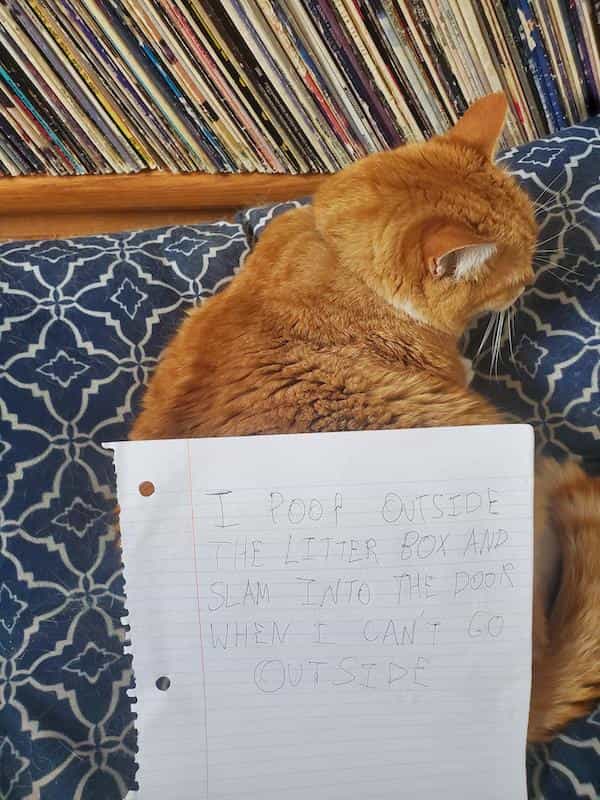 I POOP OUTSIDE
THE LITTER BOX AND
SLAM INTO THE DOOR
WHEN I CAN'T GO
OUTSIDE